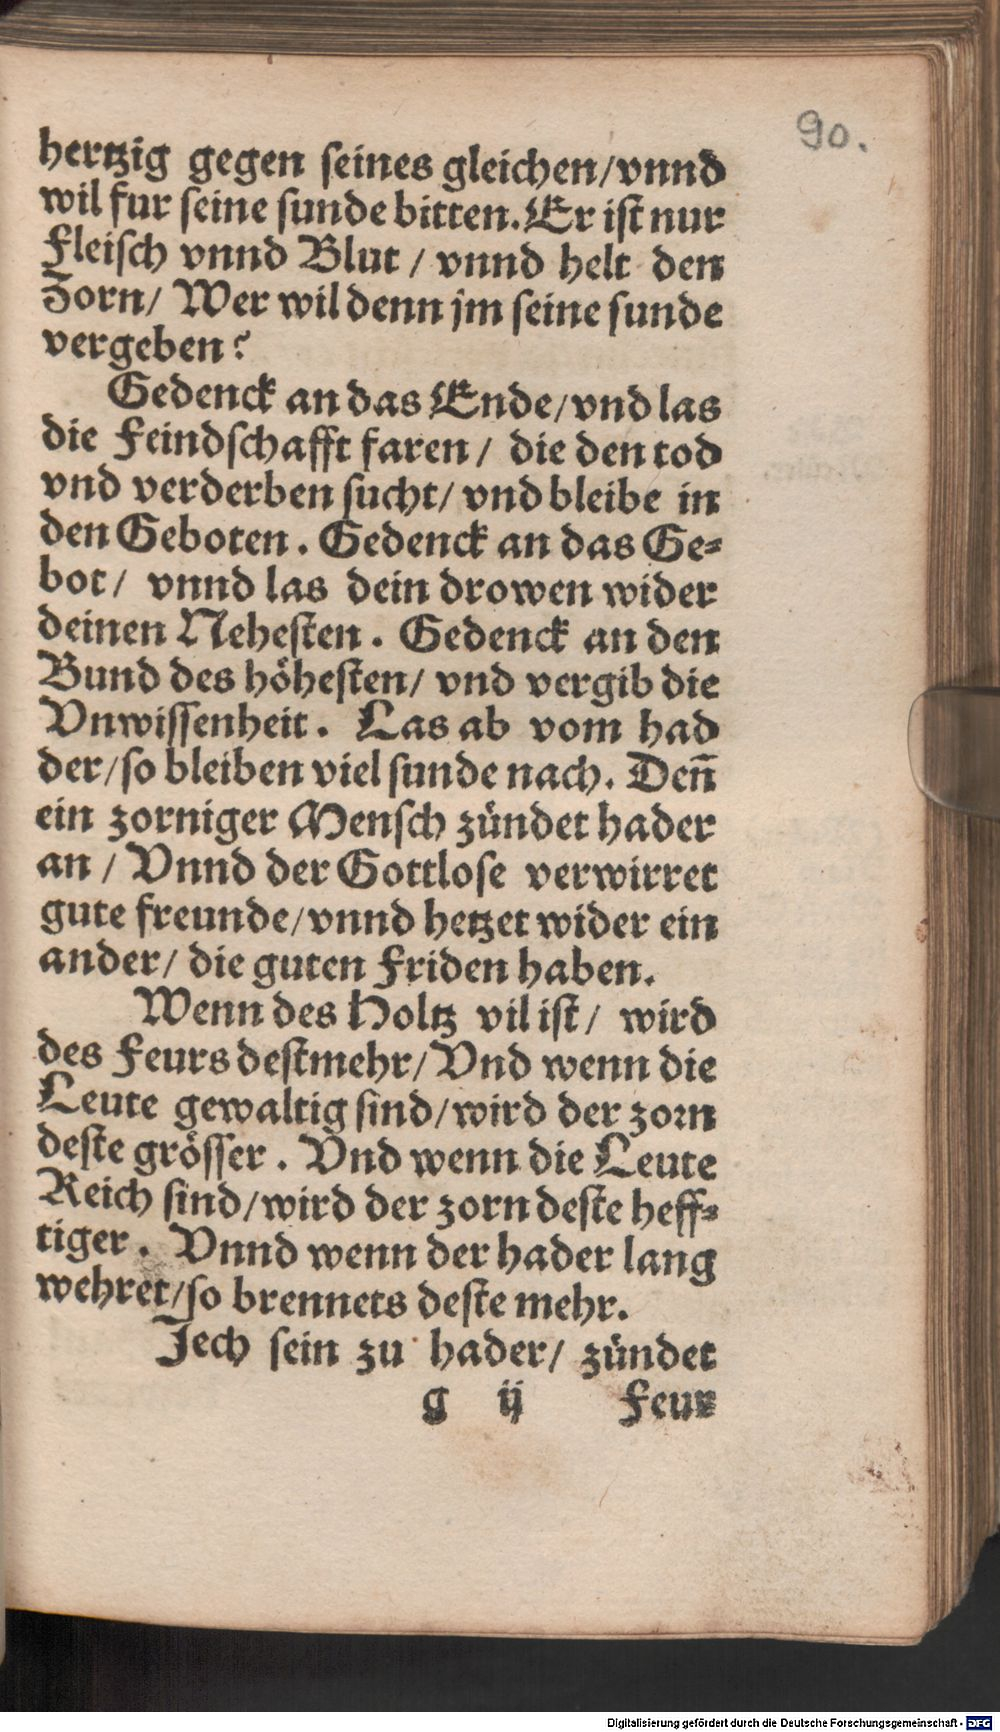 90.
hertzig gegen seines gleichen/vnnd
wil fur seine sunde bitten. Er ist nur
Fleisch vnnd Blut / vnnd helt den
Zorn/ Wer wil denn jm seine sunde
vergeben?
Gedenck an das Ende/vnd las
die Feindschafft faren / die den tod
vnd verderben sucht/ vnd bleibe in
den Geboten. Gedenck an das Ge-
bot/ vnnd las dein drowen wider
deinen Nehesten. Gedenck an den
Bund des höhesten/ vnd vergib die
Vnwissenheit. Las ab vom had
der/so bleiben viel sunde nach. Deñ
ein zorniger Mensch zündet hader
an / Vnnd der Gottlose verwirret
gute freunde/vnnd hetzet wider ein
ander/ die guten Friden haben.
Wenn des Holtz vil ist/ wird
des Feurs destmehr/ Vnd wenn die
Leute gewaltig sind/wird der zorn
deste grösser. Vnd wenn die Leute
Reich sind/wird der zorn deste heff-
tiger. Vnnd wenn der hader lang
wehret/so brennets deste mehr.
Jech sein zu hader/ zündet
g ij Feur
Digitalisierung gefördert durch die Deutsche Forschungsgemeinschaft - DFG